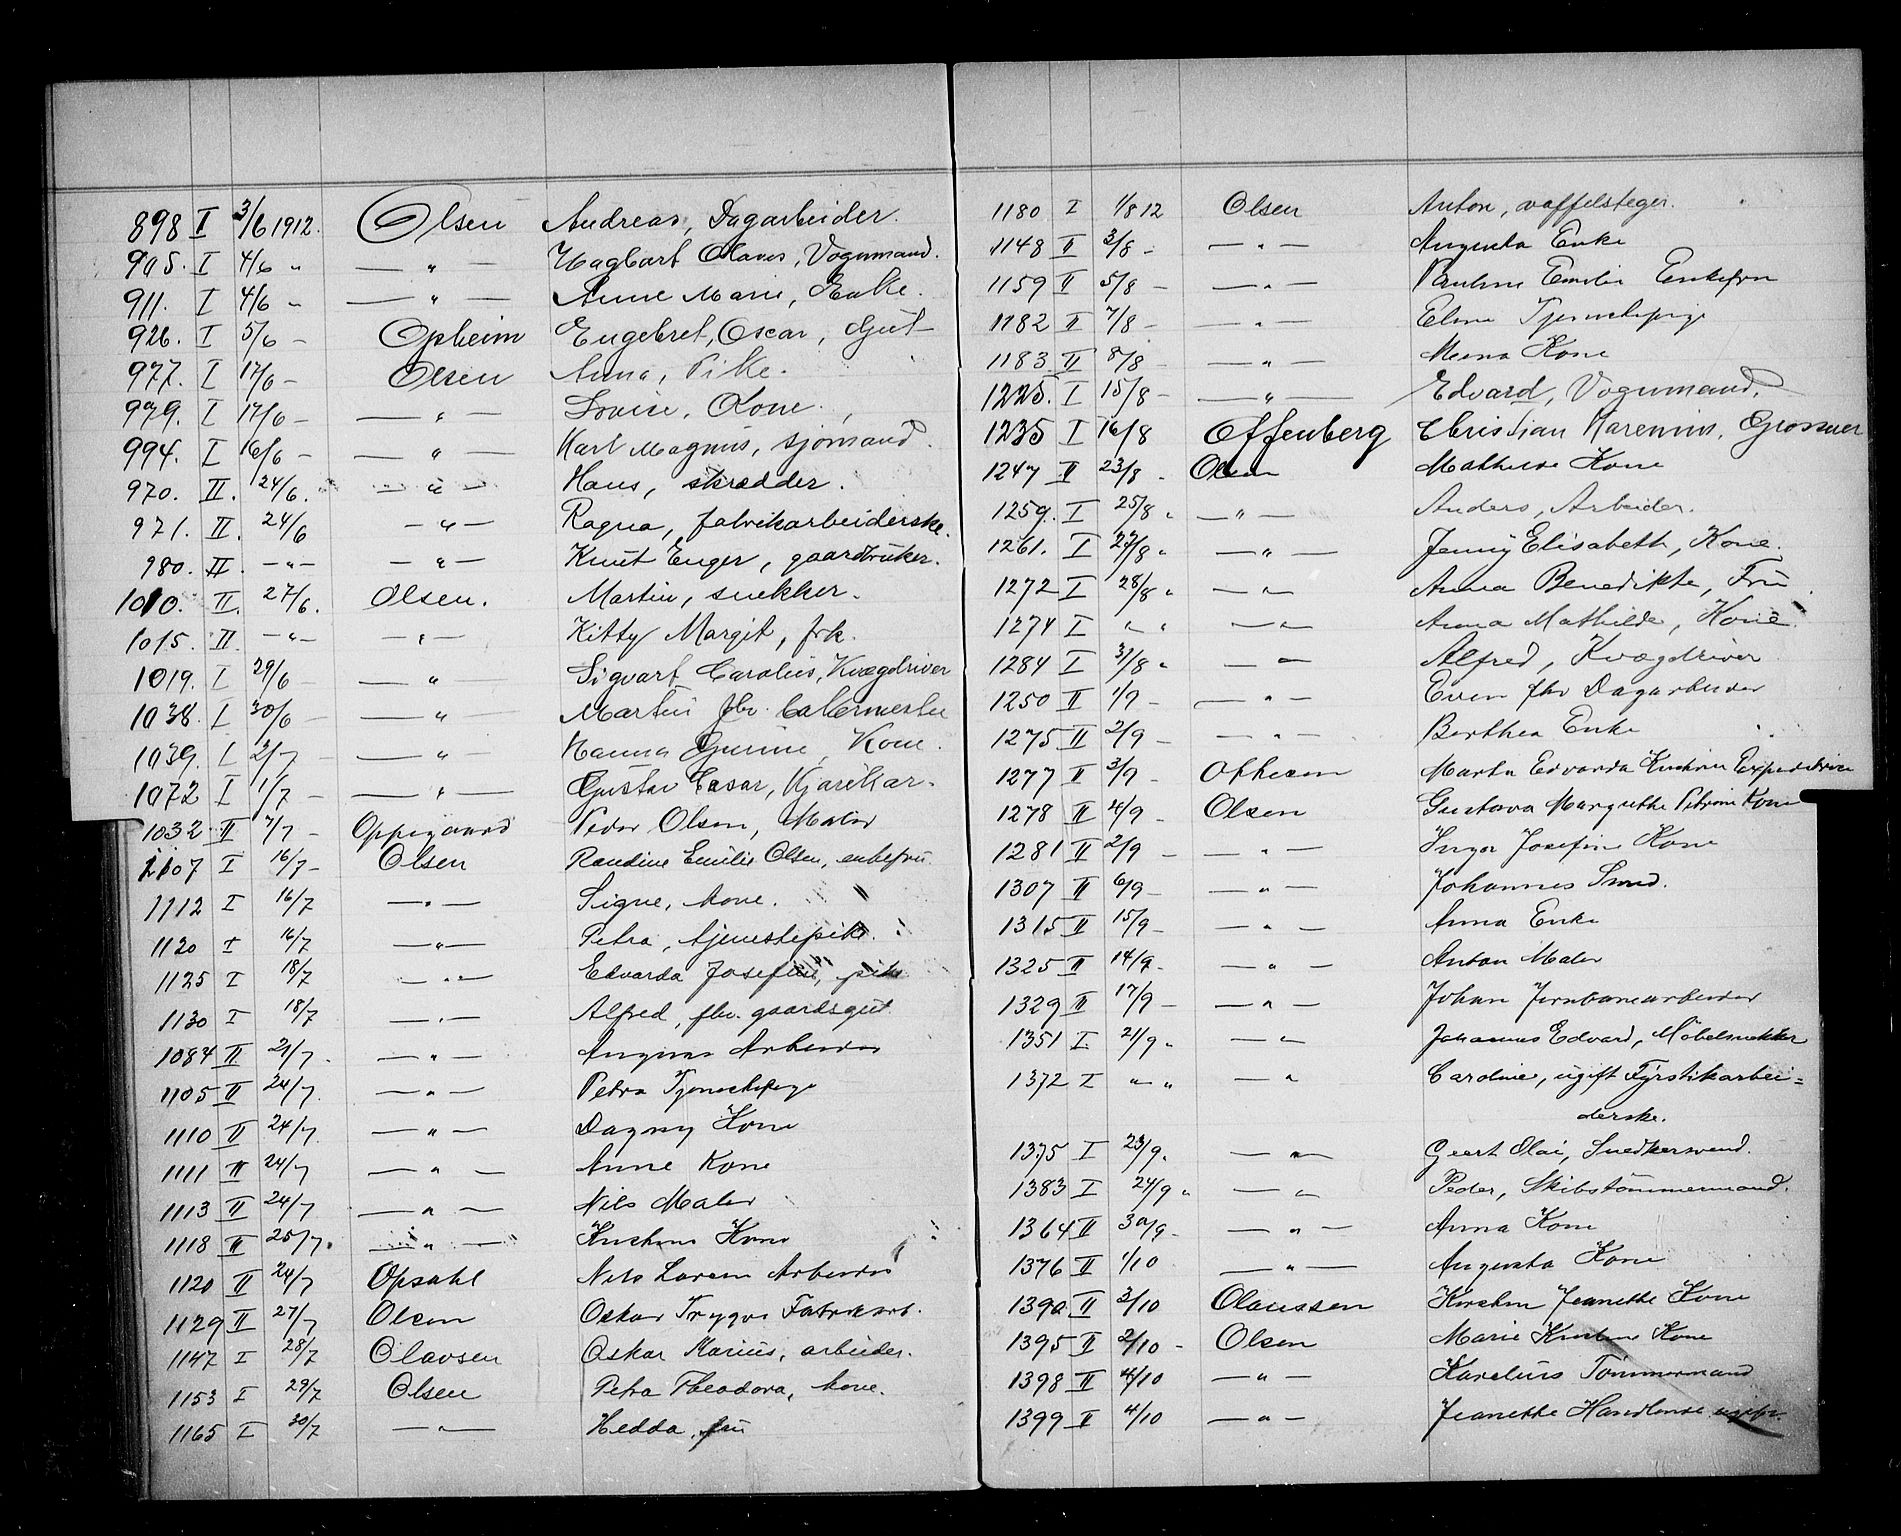 898 I 3/6 1912. Olsen Andreas, Dagarbeider.
905. I 4/6 " — " — Hagbart Olaves, Vognmand.
911. I 4/6 " — " — Anne Marie, Enke.
926. I 5/6 – Opheim Engebret, Oscar, Gut
977. I 17/6 – Olsen Anna, Pike.
979. I 17/6 – — " — Lovise, Kone.
994. I 16/6 – — " — Karl Magnus, sjømand.
970. II. 24/6. — " — Hans, skrædder.
971. II. 24/6 — " — Ragna, fabrikarbeiderske.
980. II. — " — — " — Knut Enger, gaardbruker.
1010. II. 27/6. Olsen. Martin, snekker.
1015. II. — " — — " — Kitty Margit, frk.
1019. I 29/6 – — " — Sigvart Carolius, Kvægdriver
1038. I 30/6 – — " — Martin fhv. bakermester
1039. I 2/7 – — " — Hanna Gurine, Kone.
1072 I 1/7 – — " — Gustav Cæsar, Kjørekar.
1032 II 7/7 – Oppegaard Peder Olsen, Maler
1107 I 16/7 – Olsen Randine Emilie Olsen, enkefru.
1112 I 16/7 — " — Signe, kone.
1120 I 16/7 — " — Petra, tjenestepike.
1125 I 18/7 — " — Edvarda Josefine, pike
1130 I 18/7 — " — Alfred, fhv. gaardsgut
1084 II 21/7. — " — August Arbeider
1105 II 24/7. — " — Petra Tjenestepige
1110 II 24/7. — " — Dagny Kone
1111 II 24/7 — " — Anne Kone
1113 II 24/7 — " — Nils Maler
1118 II 25/7. — " — Kristine Kone
1120 II 24/7 Opsahl Nils Laren Arbeider
1129 II 27/7 Olsen Oskar Trygve Fabrikarb.
1147 I 28/7 Olavsen Oskar Marius, arbeider.
1153 I 29/7 Olsen Petra Theodora, kone.
1165 I 30/7 — " — Hedda, fru
1180 I 1/8 12 Olsen Anton, vaffelsteger.
1148 II 3/8 – — " — Augusta Enke
1159 II 5/8 – — " — Pauline Emilie Enkefru
1182 II 7/8 – — " — Elise Tjenestepige
1183 II 8/8 – — " — Mina Kone
1225. I 15/8 – — " — Edvard, Vognmand.
1235 I 16/8 Offenberg Christian Marenius, Grosserer
1247 II 23/8. Olsen Mathilde Kone
1259. I 25/8 " — " — Anders, Arbeider.
1261. I 27/8 " — " — Jenny Elisabeth, Kone.
1272 I 28/8 " — " — Anna Benedikte, Fru
1274 I " " — " — Anna Mathilde, Kone.
1284 I 31/8 " — " — Alfred, Kvægdriver
1250 II 1/9 – — " — Even fhv Dagarbeider
1275 II 2/9 – — " — Berthea Enke
1277 II 3/9 – Opheim Marta Edvarda Kristine Expeditrice
1278 II 4/9 – Olsen Gustava Margrethe Petrine Kone
1281 II 2/9 – — " — Inger Josefine Kone
1307 II 6/9 – — " — Johannes Smed.
1315 II 15/9 – — " — Anna Enke
1325 II 14/9 – — " — Anton Maler
1329 II 17/9 – — " — Johan Jernbanearbeider
1351 I 21/9 " — " Johannes Edvard, Møbelsnekker
1372 I " " — " Caroline, ugift Fyrstikarbei=
derske.
1375 I 23/9. — " — Geert Olai, Snedkersvend.
1383 I 24/9 " — " Peder, Skibstømmermand.
1364 II 30/9 – — " — Anna Kone
1376 II 1/10 — " — Augusta Kone
1390 II 3/10 Olaussen Kirsten Jeanette Kone
1395 II 2/10 – Olsen Marie Kristine Kone
1398 II 4/10 — " — Karelius Tømmermand
1399 II 4/10 — " — Jeanette Handlende